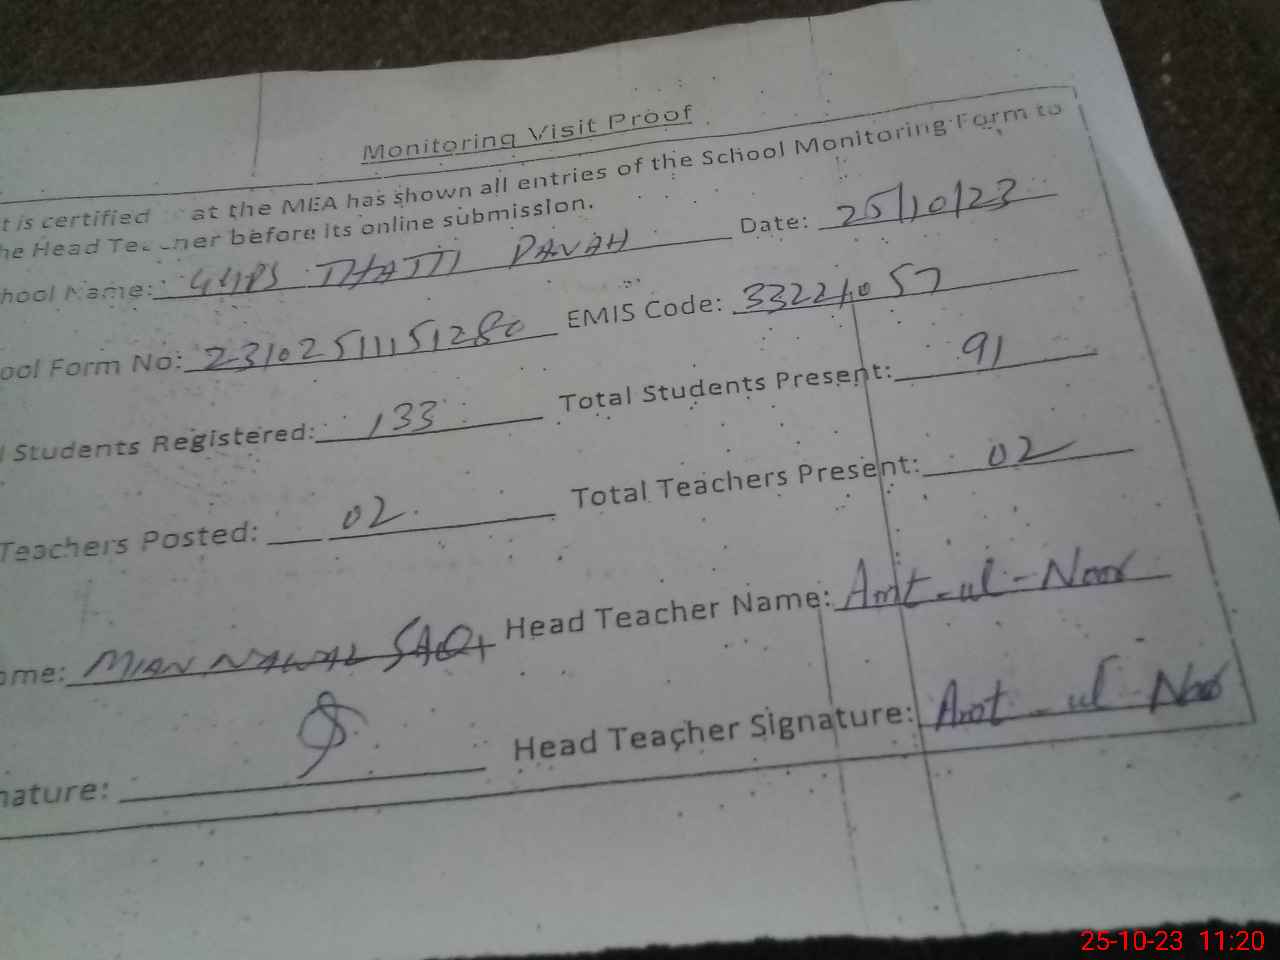 Monitoring Visit Proof
t is certified at the MEA has shown all entries of the School Monitoring Form to
he Head Teacher before its online submission.
hool Name: GGPS THATTI PAVAH Date: 25/10/23
ool Form No: 23102511151280 EMIS Code: 33221057
l Students Registered: 133 Total Students Present: 91
Teachers Posted: 02 Total Teachers Present: 02
ame: MIAN NAWAL SAQI Head Teacher Name: Amt-ul-Noor
nature: Head Teacher Signature: Amt-ul-Noor
25-10-23 11:20